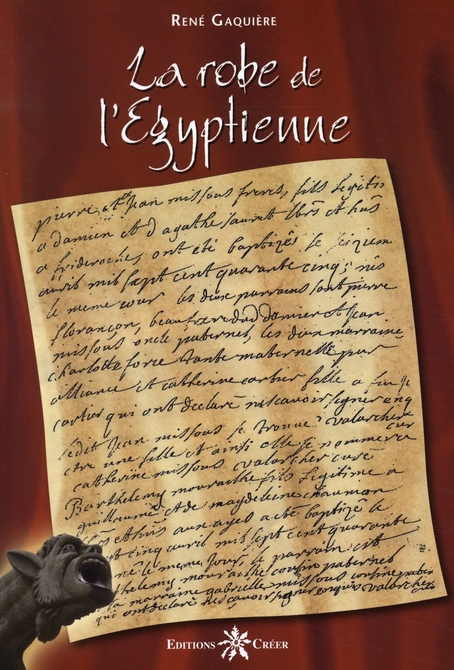 RENÉ GAQUIÈRE
La robe de
l'Egyptienne
pierre et Jean missous freres, fils legitis
a damien et d agathe laurent
a frideroches ont été baptizés le
avril mil sept cent quarante cinq; nés
le meme jour les deux parrains sont pierre
florançon, beaufrere dud damien et Jean
missous oncle paternel, les deux marraine
charlotte force tante maternelle par
alliance et catherine cartier fille a feu
cartier qui ont declaré ne scavoir signer
ledit Jean missous se trouve valarcher
etre une fille et ainsi elle se nommera cur
catherine missous valarcher curé
Barthelemy mouranthe fils legitime à
guillaume et de magdeleine chaumon
aux ayes a été baptizé le
cinq avril mil sept cent quarante
né le meme Jour, le parrain est
mouranthe cousin paternel
la marraine gabrielle missous cousine paternel
qui ont declaré ne scavoir signer valarcher
EDITIONS CRÉER